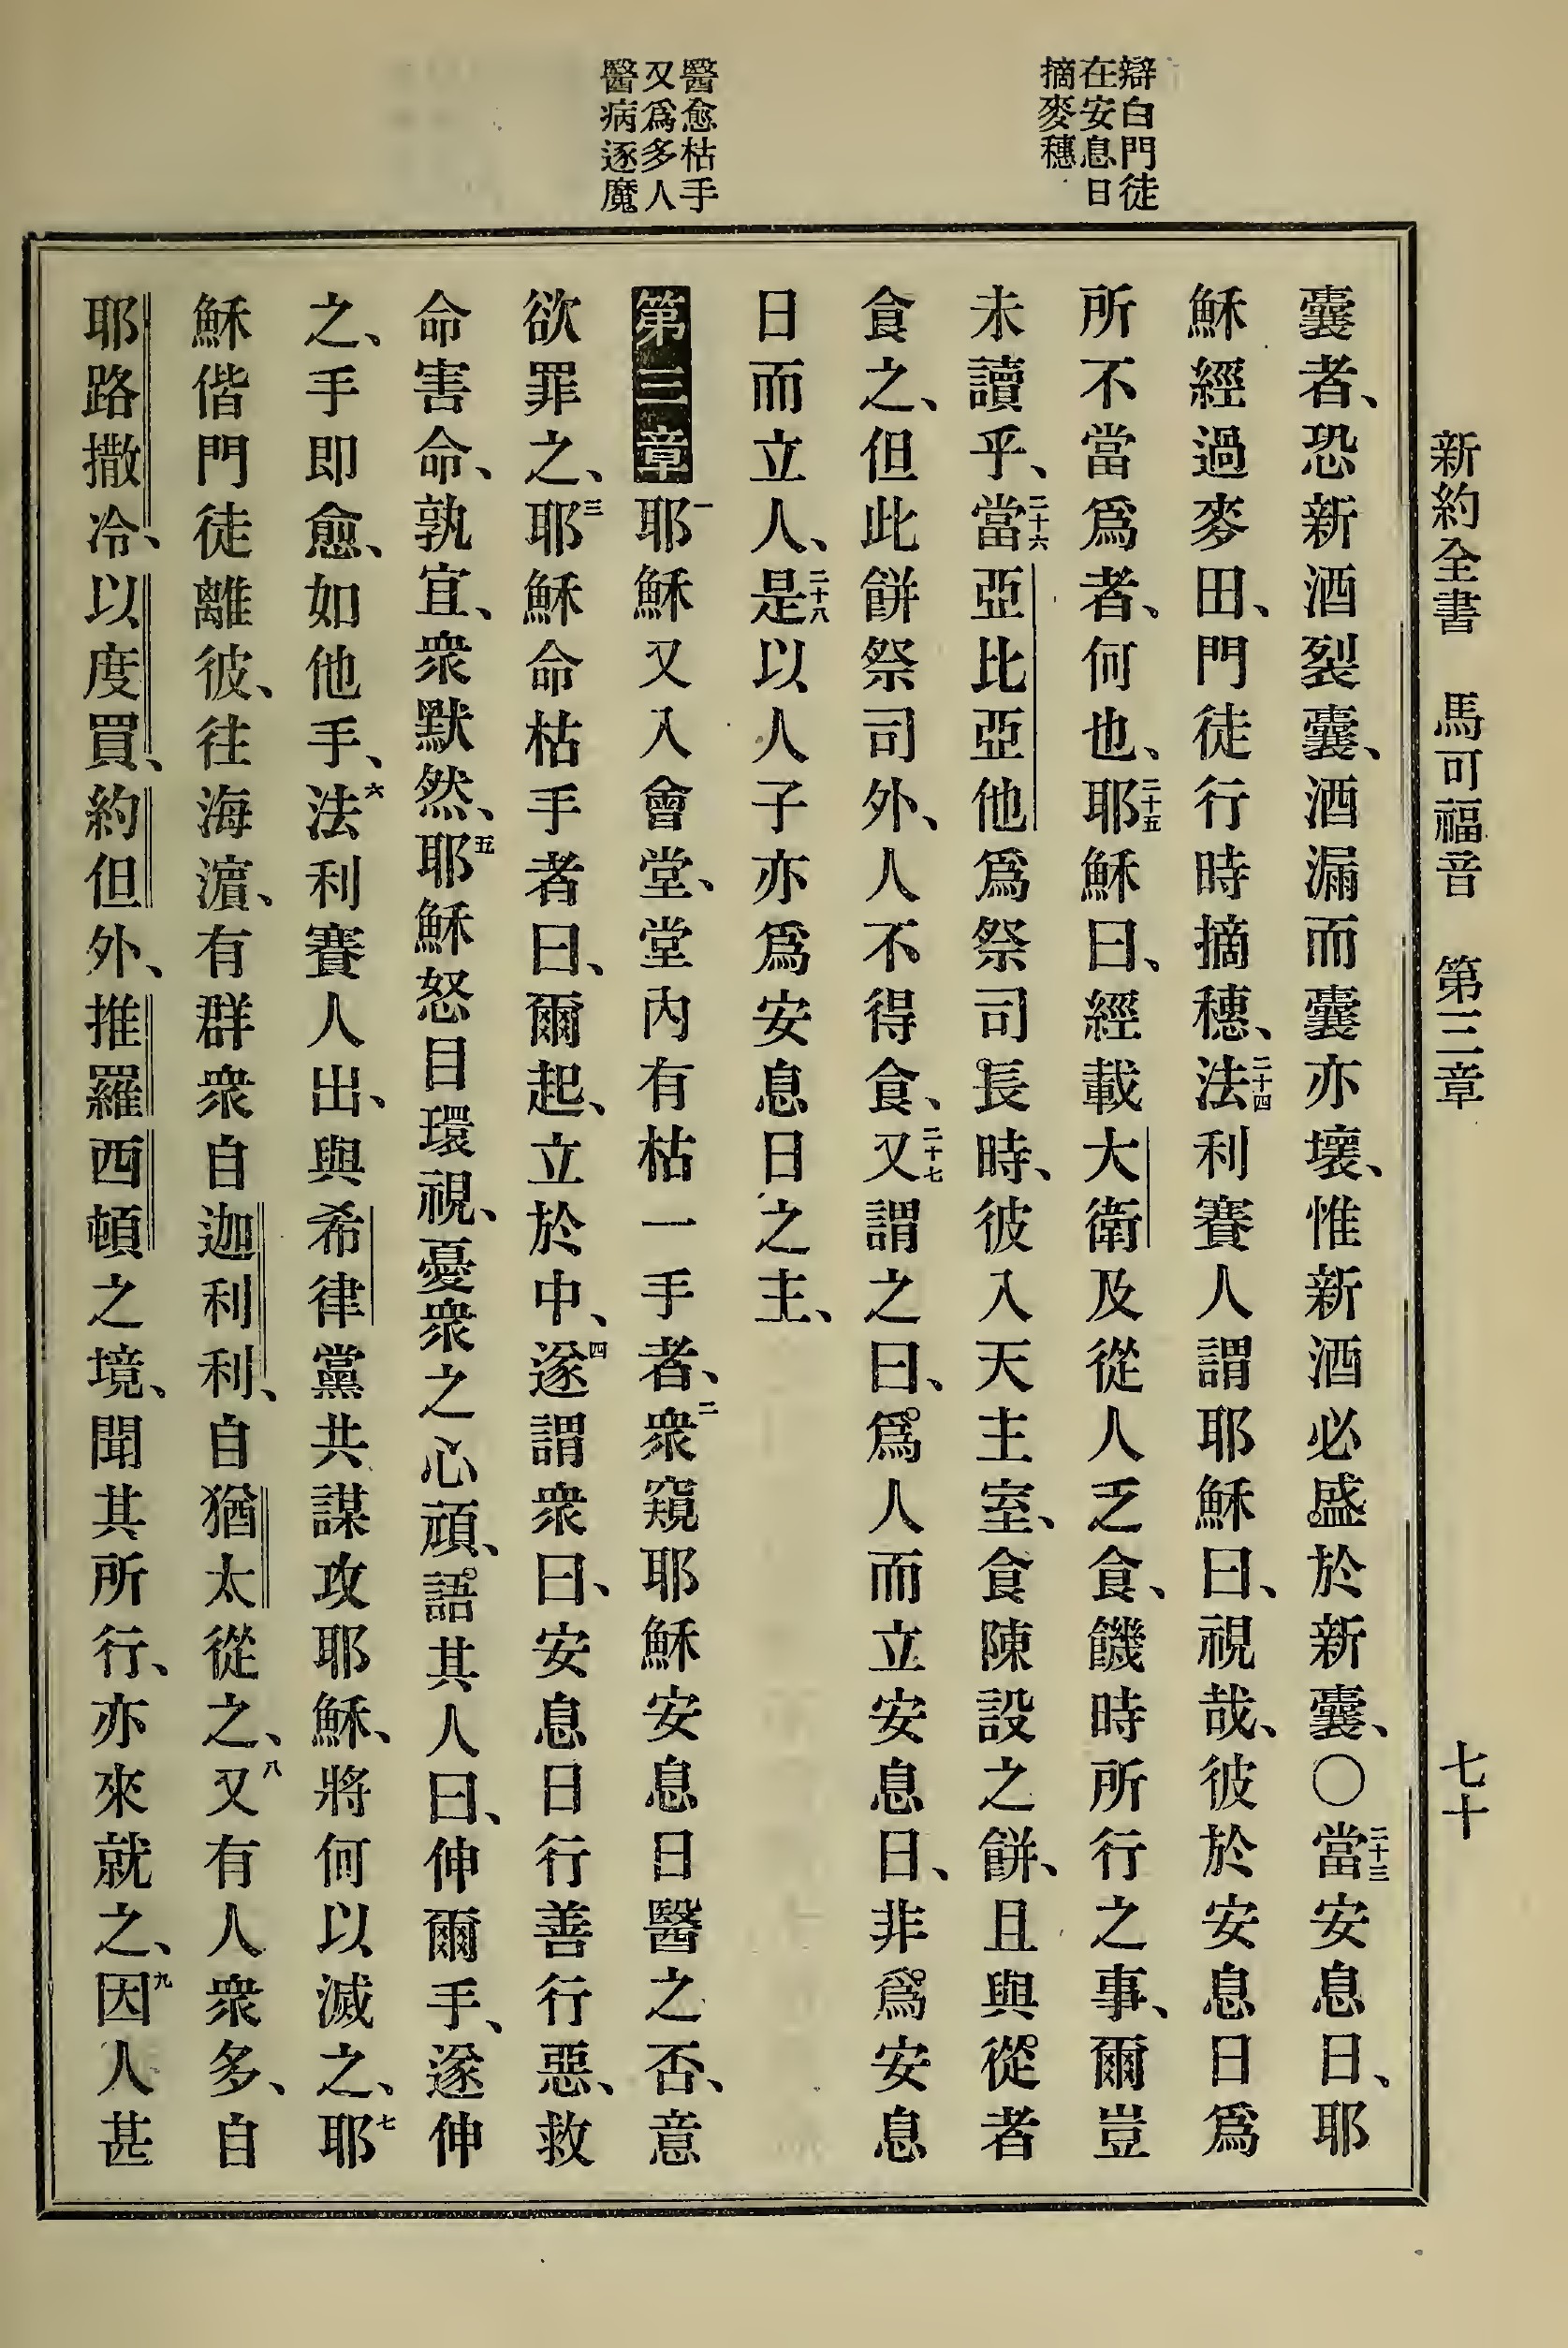 新約全書 馬可福音 第三章 七十
辯白門徒
在安息日
摘麥穗
醫愈枯手
又爲多人
醫病逐魔
囊者、恐新酒裂囊、酒漏而囊亦壞、惟新酒必盛於新囊、〇二十三當安息日、耶
穌經過麥田、門徒行時摘穗、二十四法利賽人謂耶穌曰、視哉、彼於安息日爲
所不當爲者、何也、二十五耶穌曰、經載大衛及從人乏食、饑時所行之事、爾豈
未讀乎、二十六當亞比亞他爲祭司長時、彼入天主室、食陳設之餅、且與從者
食之、但此餅祭司外、人不得食、二十七又謂之曰、爲人而立安息日、非爲安息
日而立人、二十八是以人子亦爲安息日之主、
第三章一耶穌又入會堂、堂內有枯一手者、二衆窺耶穌安息日醫之否、意
欲罪之、三耶穌命枯手者曰、爾起、立於中、四遂謂衆曰、安息日行善行惡、救
命害命、孰宜、衆默然、五耶穌怒目環視、憂衆之心頑、語其人曰、伸爾手、遂伸
之、手即愈、如他手、六法利賽人出、與希律黨共謀攻耶穌、將何以滅之、七耶
穌偕門徒離彼、往海濵、有群衆自迦利利、自猶太從之、八又有人衆多、自
耶路撒冷、以度買、約但外、推羅西頓之境、聞其所行、亦來就之、九因人甚